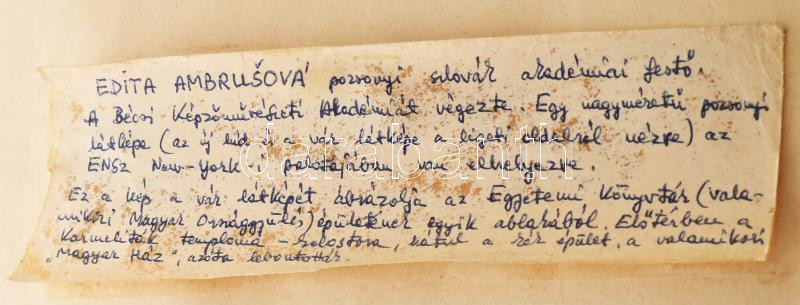 EDITA AMBRUŠOVÁ pozsonyi szlovák akadémiai festő.
A Bécsi Képzőművészeti Akadémiát végezte. Egy nagyméretű pozsonyi
látképe (az új híd és a vár látképe a ligeti oldalról nézve) az
ENSZ New-York i palotájában van elhelyezve.
Ez a kép a vár látképét ábrázolja az Egyetemi Könyvtár (vala-
mikori Magyar Országgyűlés) épületének egyik ablakából. Előtérben a
Karmeliták temploma - kolostora, hátul a épület, a valamikori
"Magyar Ház", azóta lebontották.
darabanth